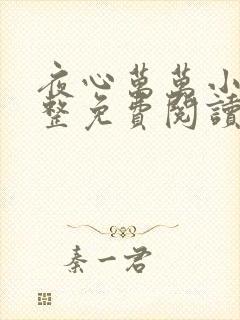 夜心萬萬小
整免費閱讀
秦一君